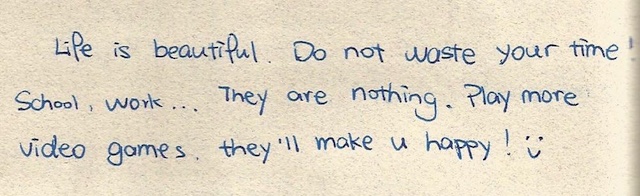 Life is beautiful. Do not waste your time!
School, work... They are nothing. Play more
video games. they'll make u happy! :)